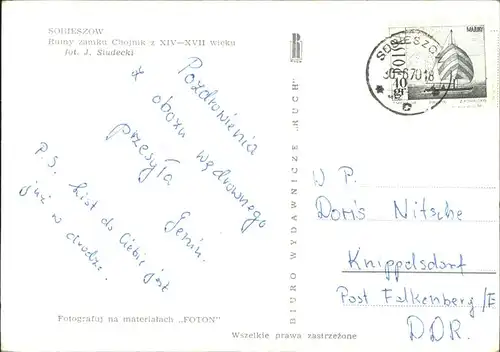 SOBIESZÓW
Ruiny zamku Chojnik z XIV—XVII wieku
fot. J. Siudecki
Pozdrowienia
z obozu wędrownego
przesyła
Genin.
P.S. List do Ciebie jest
już w drodze.
Fotografuj na materiałach „FOTON”
Wszelkie prawa zastrzeżone
BIURO WYDAWNICZE „RUCH”
SOBIESZÓW
30-6.70 18
W P.
Doris Nitsche
Knippelsdorf
Post Falkenberg/E
DDR.